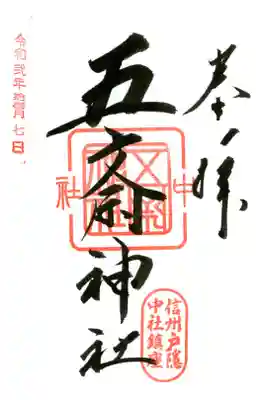 奉拝
五斎神社
中社
信州戸隠
中社鎮座
令和弐年 月七日